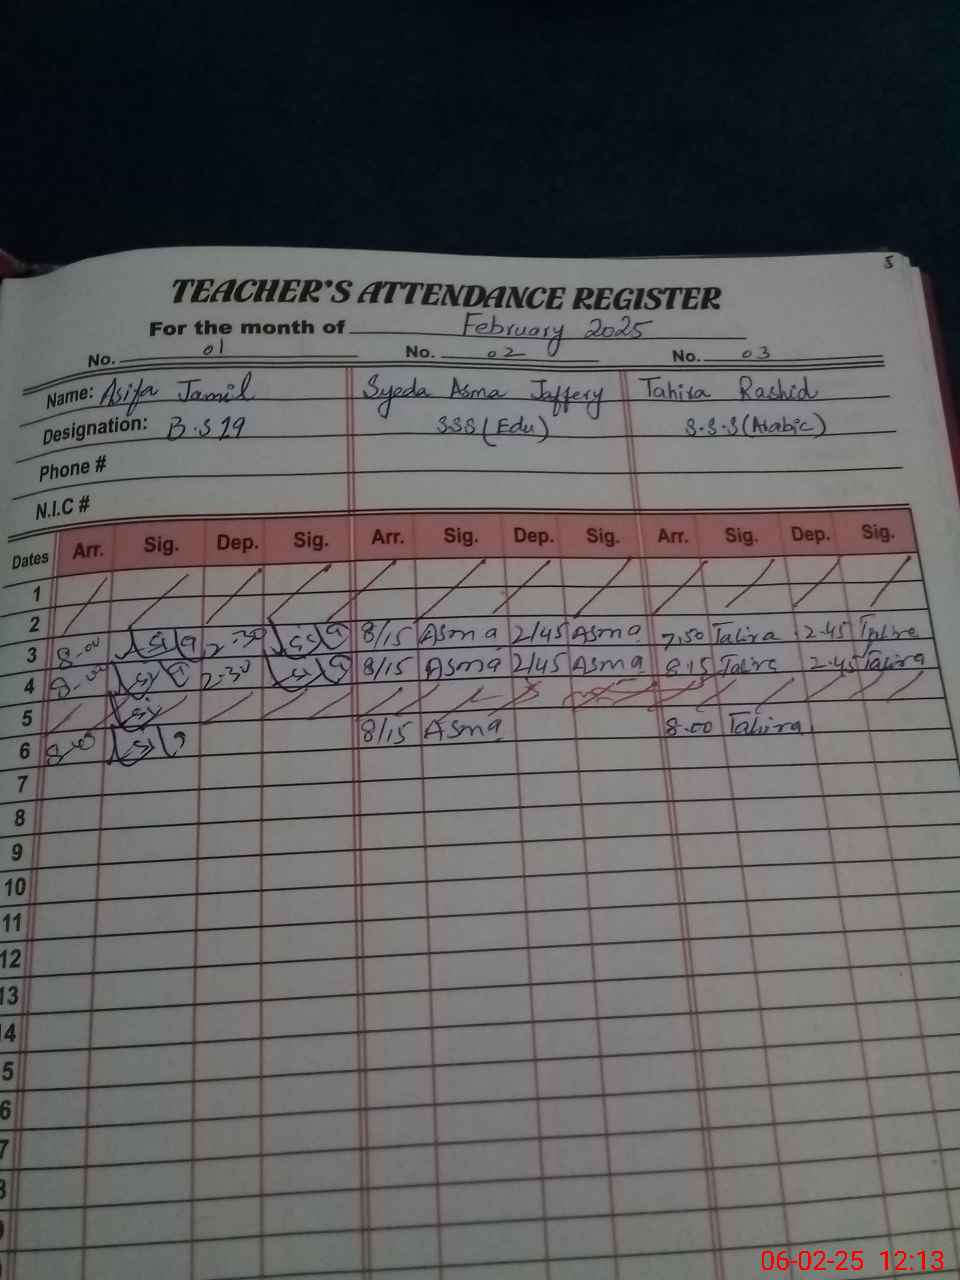 5
TEACHER'S ATTENDANCE REGISTER
For the month of February 2025
No. 01 No. 02 No. 03
Name: Asifa Jamil Syeda Asma Jaffery Tahira Rashid
Designation: B.S 19 SSS (Edu) S.S.S (Arabic)
Phone #
N.I.C #
Dates Arr. Sig. Dep. Sig. Arr. Sig. Dep. Sig. Arr. Sig. Dep. Sig.
1
2
3 8-00 2-30 8/15 Asma 2/45 Asma 7.50 Tahira 2.45 Tahira
4 8-00 2-30 8/15 Asma 2/45 Asma 8.15 Tahira 2.45 Tahira
5
6 8/15 Asma 8.00 Tahira
7
8
9
10
11
12
13
14
5
6
7
8
06-02-25 12:13